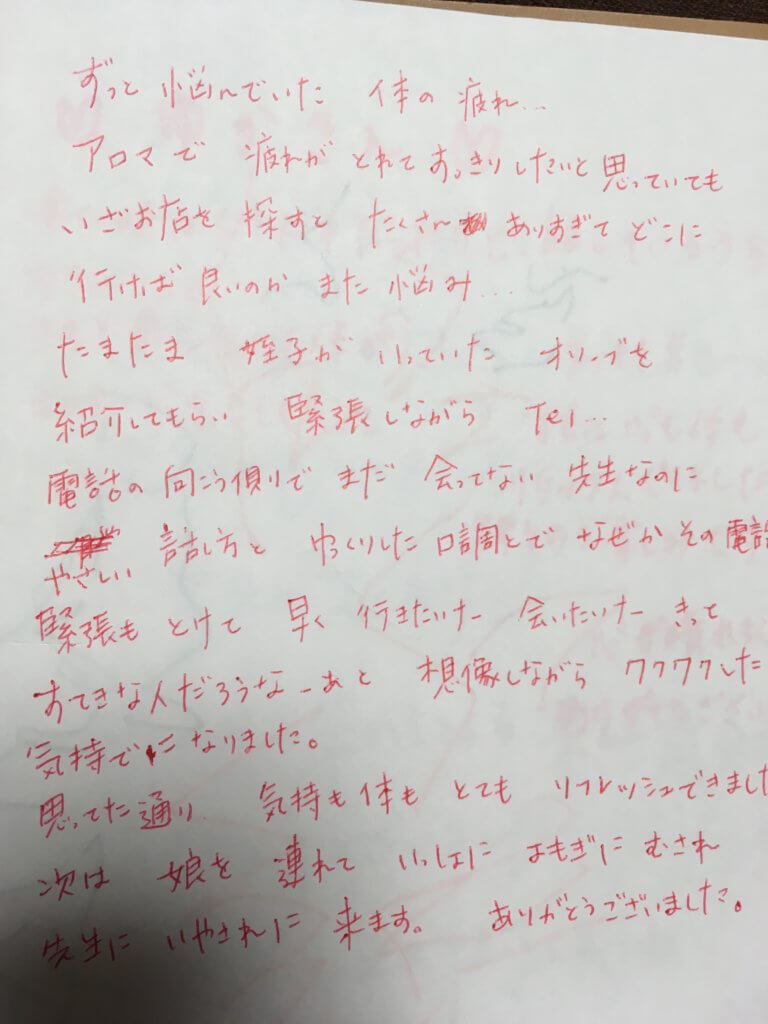 ずっと 悩んでいた 体の 疲れ...
アロマで 疲れが とれて すっきりしたいと思っていても
いざお店を 探すと たくさん ありすぎて どこに
行けば 良いのか また 悩み...
たまたま 姪子が いっていた オリーブを
紹介してもらい 緊張しながら Tel...
電話の 向こう側で まだ 会ってない 先生なのに
やさしい 話し方と ゆっくりした 口調とで なぜか その 電話
緊張も とけて 早く 行きたいナー 会いたいナー きっと
すてきな人だろうなーあと 想像しながら ワクワクした
気持でになりました。
思ってた通り 気持も 体も とても リフレッシュできまし
次は 娘を 連れて いっしょに よもぎに むされ
先生に いやされに 来ます。 ありがとうございました。